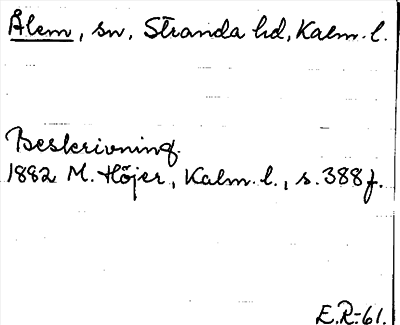 Ålem, sn, Stranda hd, Kalm. l.
Beskrivning.
1882 M. Höjer, Kalm. l., s. 388 f.
E.R-61.